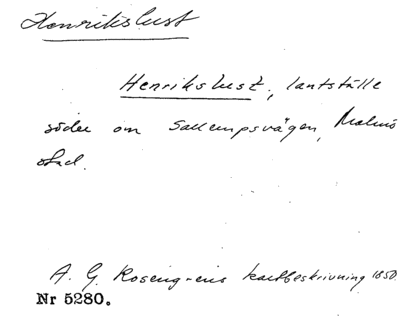 Henrikslust
Henrikslust, lantställe
söder om Sallerupsvägen, Malmö
stad.
A. G. Rosengrens kartbeskrivning 1850.
Nr 5280.